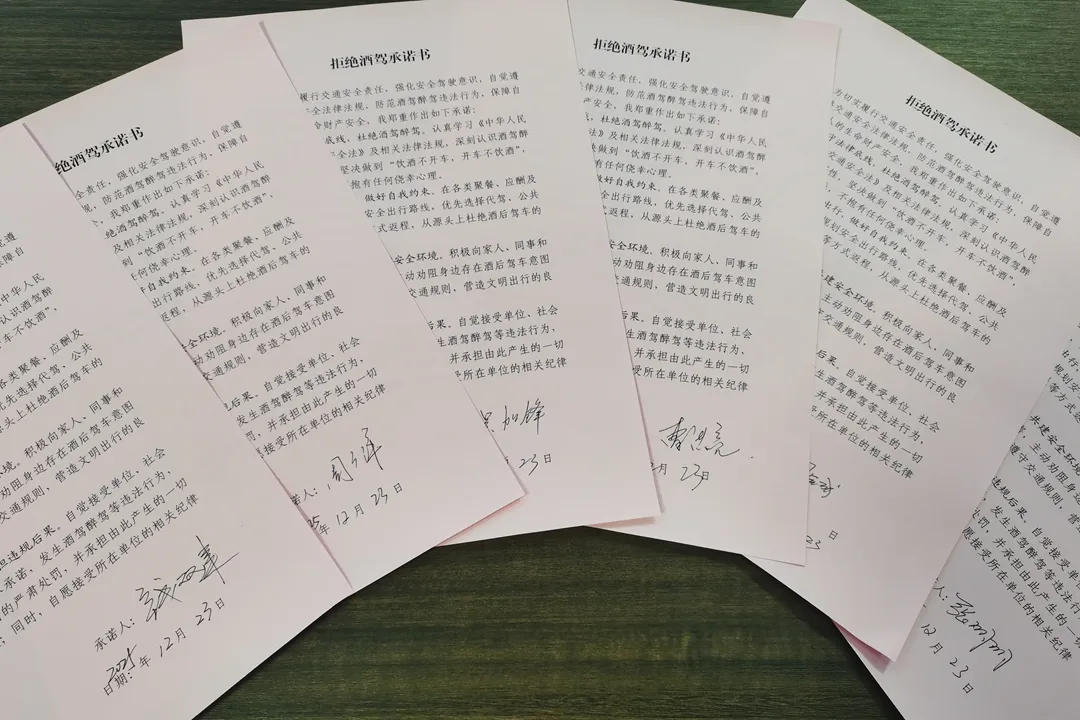 自觉遵
保障自
《中华人民
认识酒驾醉
车不饮酒”，
各类聚餐、应酬及
优先选择代驾、公共
上杜绝酒后驾车的
环境。积极向家人、同事和
动劝阻身边存在酒后驾车意图
交通规则，营造文明出行的良
担违规后果。自觉接受单位、社会
承诺，发生酒驾醉驾等违法行为，
的严肃处罚，并承担由此产生的一切
；同时，自愿接受所在单位的相关纪律
承诺人：
日期：2025年12月23日
绝酒驾承诺书
全责任，强化安全驾驶意识，自觉遵
规，防范酒驾醉驾违法行为，保障自
，我郑重作出如下承诺：
绝酒驾醉驾。认真学习《中华人民
及相关法律法规，深刻认识酒驾醉
到“饮酒不开车，开车不饮酒”，
任何侥幸心理。
自我约束。在各类聚餐、应酬及
出行路线，优先选择代驾、公共
返程，从源头上杜绝酒后驾车的
全环境。积极向家人、同事和
动劝阻身边存在酒后驾车意图
交通规则，营造文明出行的良
后果。自觉接受单位、社会
发生酒驾醉驾等违法行为，
罚，并承担由此产生的一切
愿接受所在单位的相关纪律
诺人：
25年12月23日
拒绝酒驾承诺书
履行交通安全责任，强化安全驾驶意识，自觉遵
全法律法规，防范酒驾醉驾违法行为，保障自
命财产安全，我郑重作出如下承诺：
底线，杜绝酒驾醉驾。认真学习《中华人民
全法》及相关法律法规，深刻认识酒驾醉
坚决做到“饮酒不开车，开车不饮酒”，
抱有任何侥幸心理。
做好自我约束。在各类聚餐、应酬及
安全出行路线，优先选择代驾、公共
式返程，从源头上杜绝酒后驾车的
安全环境。积极向家人、同事和
主动劝阻身边存在酒后驾车意图
交通规则，营造文明出行的良
后果。自觉接受单位、社会
生酒驾醉驾等违法行为，
并承担由此产生的一切
受所在单位的相关纪律
加锋
23日
拒绝酒驾承诺书
行交通安全责任，强化安全驾驶意识，自觉遵
法律法规，防范酒驾醉驾违法行为，保障自
财产安全，我郑重作出如下承诺：
底线，杜绝酒驾醉驾。认真学习《中华人民
法》及相关法律法规，深刻认识酒驾醉
坚决做到“饮酒不开车，开车不饮酒”，
有任何侥幸心理。
做好自我约束。在各类聚餐、应酬及
安全出行路线，优先选择代驾、公共
式返程，从源头上杜绝酒后驾车的
安全环境。积极向家人、同事和
主动劝阻身边存在酒后驾车意图
交通规则，营造文明出行的良
后果。自觉接受单位、社会
生酒驾醉驾等违法行为，
并承担由此产生的一切
受所在单位的相关纪律
月23日
拒绝酒驾承诺书
为切实履行交通安全责任，强化安全驾驶意识，自觉遵
交通安全法律法规，防范酒驾醉驾违法行为，保障自
人的生命财产安全，我郑重作出如下承诺：
守法律底线，杜绝酒驾醉驾。认真学习《中华人民
交通安全法》及相关法律法规，深刻认识酒驾醉
性，坚决做到“饮酒不开车，开车不饮酒”，
不抱有任何侥幸心理。
行，做好自我约束。在各类聚餐、应酬及
规划安全出行路线，优先选择代驾、公共
等方式返程，从源头上杜绝酒后驾车的
建安全环境。积极向家人、同事和
主动劝阻身边存在酒后驾车意图
守交通规则，营造文明出行的良
后果。自觉接受单位、社会
发生酒驾醉驾等违法行为，
并承担由此产生的一切
受所在单位的相关纪律
23日
共建安全环境
遵守交通规则，营
发生酒驾醉驾等
罚，并承担由此产生的一切
愿接受所在单位的相关纪律
人：
12月23日